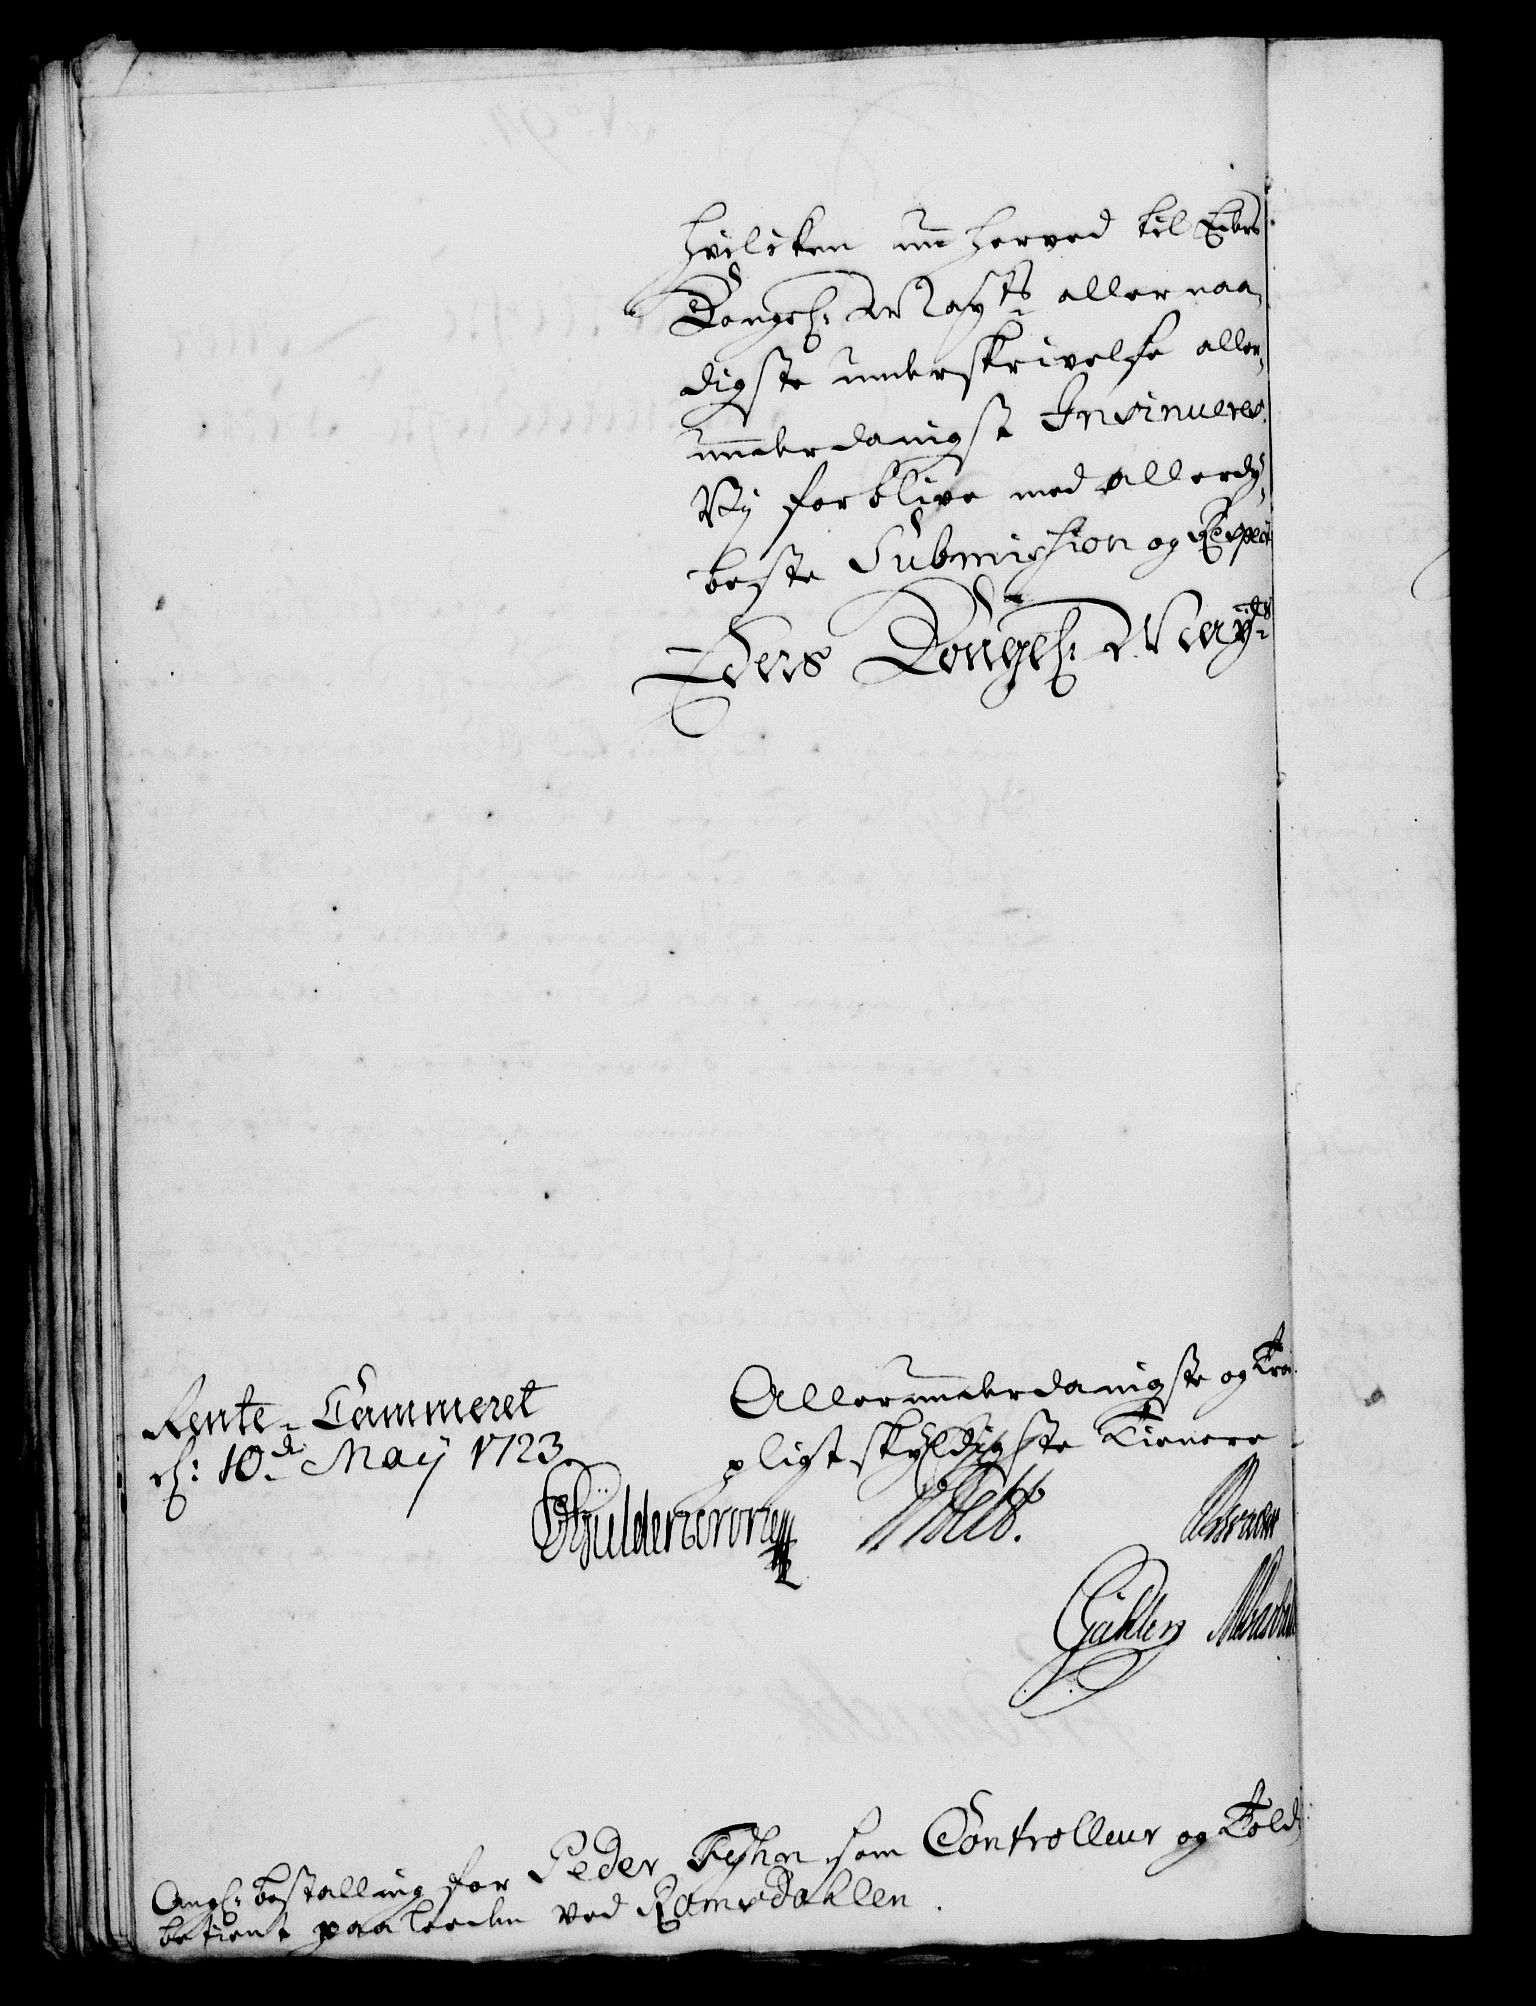 hvilcken nu herved til Eders
Kongel: Mayts allernaa-
digste underskrivelse aller-
underdanigst Insinueres.
Vij forblive med allerdy-
beste Submission og Respect
Eders Kongel: Mayts
Rente-Cammeret
d: 10de Maij 1723.
Allerunderdanigste og Troe
pligtskyldigste Tienere
Gyldencrone
Angl: bestalling for Peder Fyhn som Controlleur og Told
betient paa leeden ved Romsdahlen.